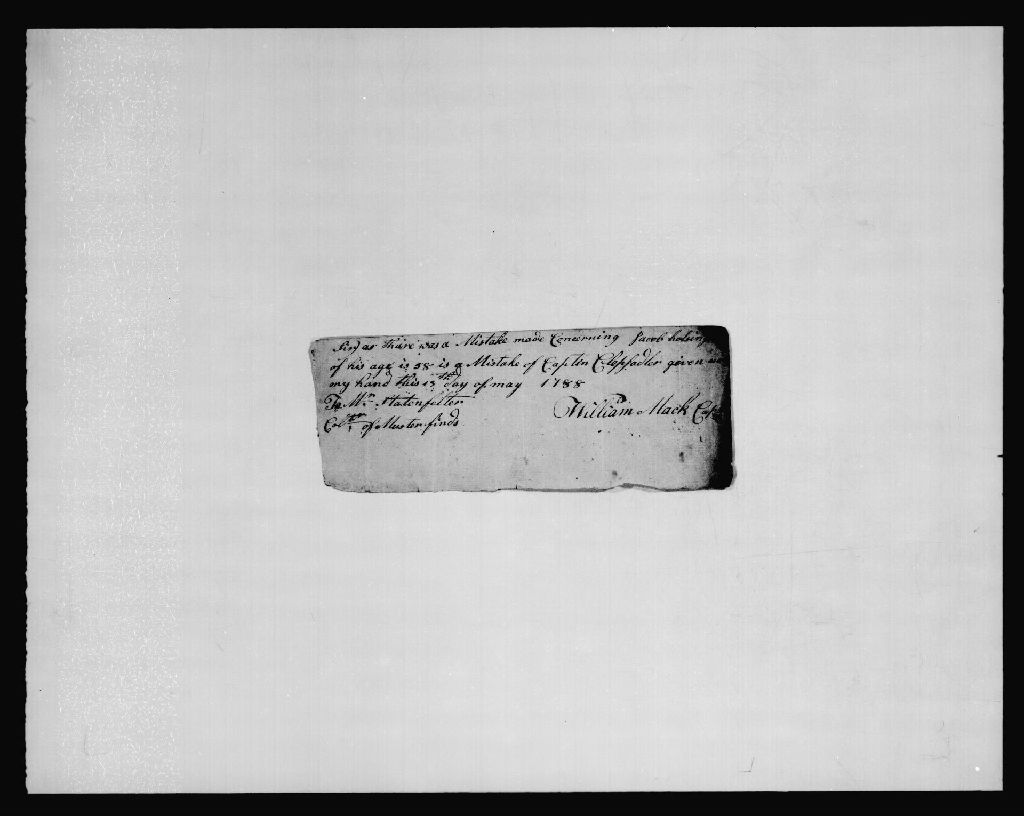 Sir as thare was a Mistake made Concerning Jacob
of his age is 58 is a Mistake of Captin given
my hand this 13th day of may 1788
To Mr. William Mack Capt
Coltr of Muster finds